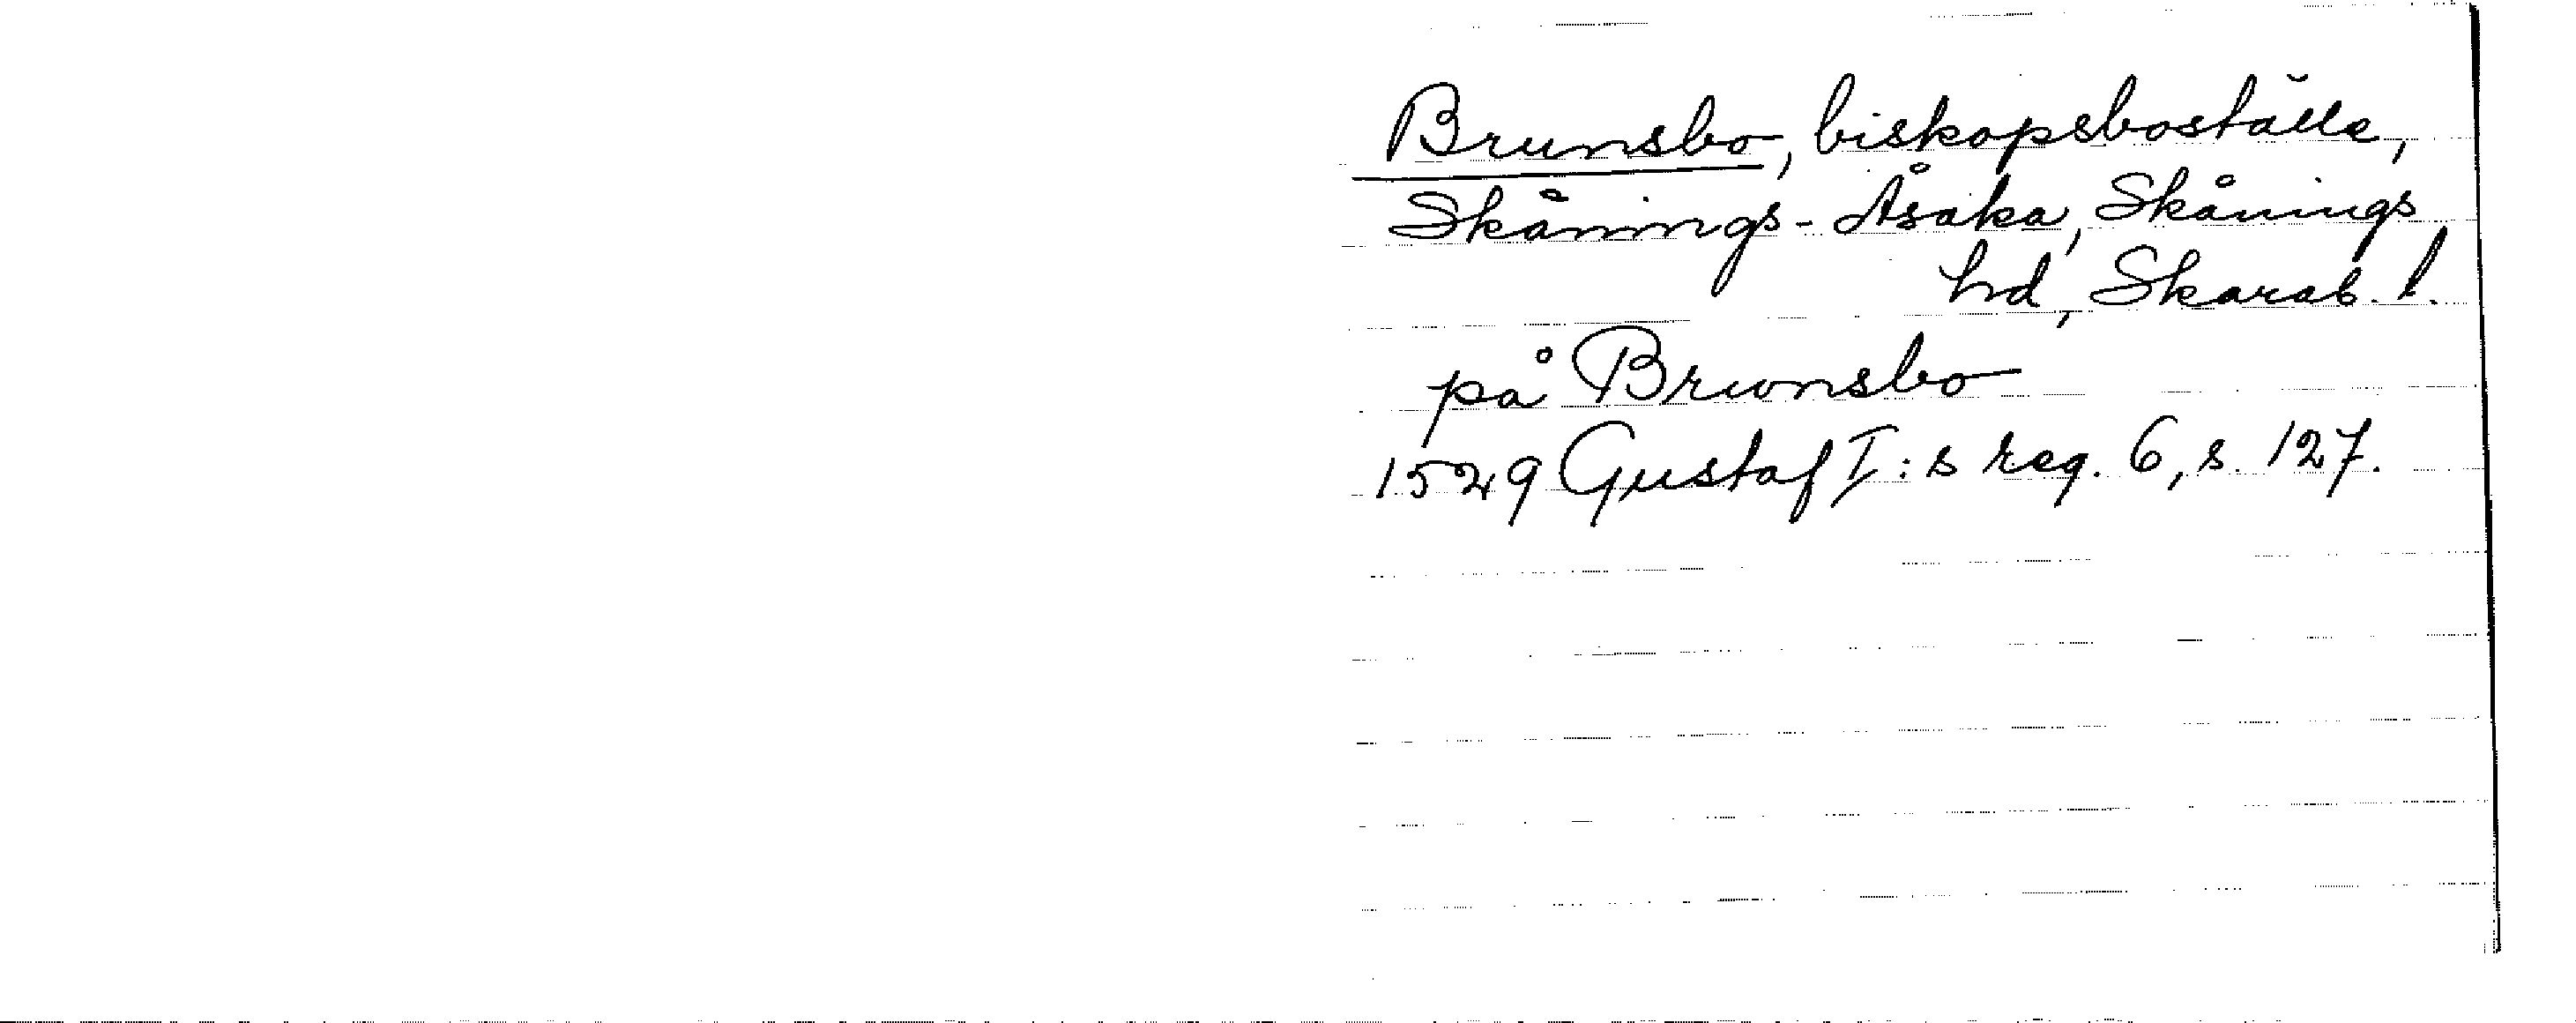 Brunsbo, biskopsboställe,
Skånings-Åsaka, Skånings
hd, Skarab. l.
på Brwnsbo
1529 Gustaf I:s reg. 6, s. 127.